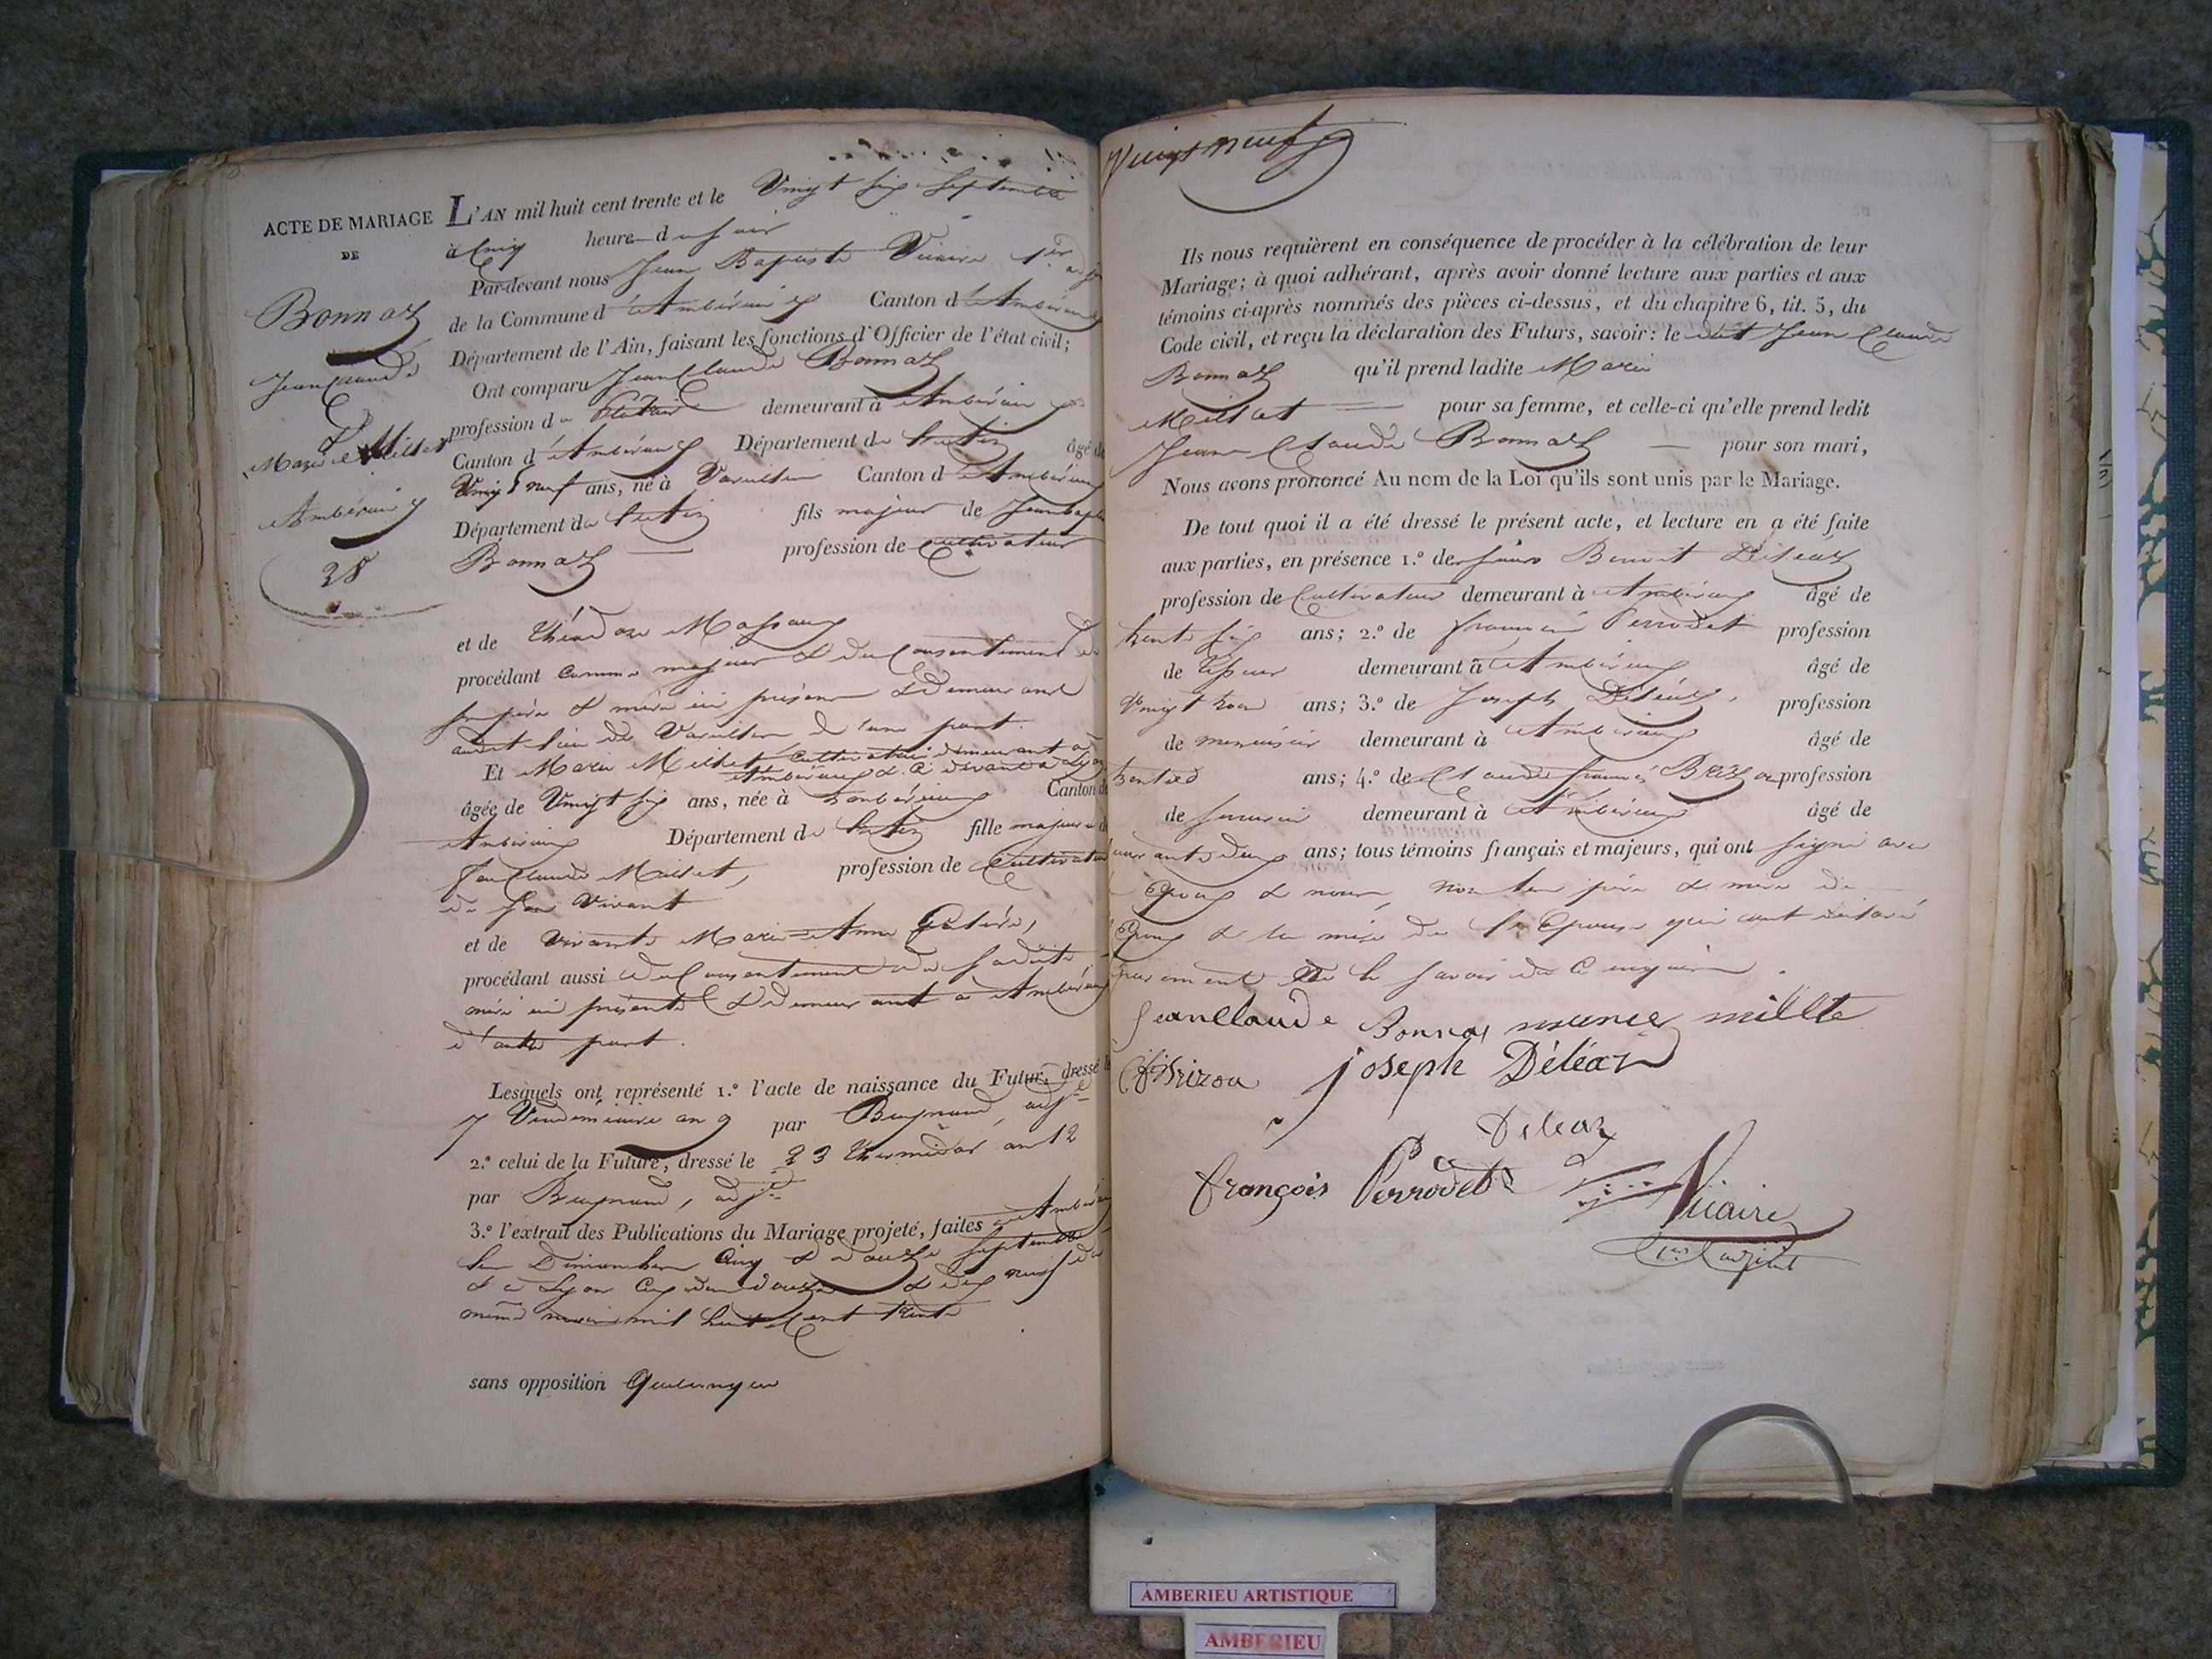 ACTE DE MARIAGE
DE
Bonnaz
Jean Claude
& Millet
Marie
Ambérieux
28
L'AN mil huit cent trente et le Vingt six Septembre
à Cinq heures du Soir
Par-devant nous Jean Baptiste Vicaire 1er adjt
de la Commune d'Ambérieux Canton d'Ambérieux
Département de l'Ain, faisant les fonctions d'Officier de l'état civil;
Ont comparu Jean Claude Bonnaz
profession de demeurant à Ambérieux
Canton d'Ambérieux Département de l'Ain âgé de
Vingt neuf ans, né à Vareilles Canton d'Ambérieux
Département de l'Ain fils majeur de Jean Baptiste
Bonnaz profession de Cultivateur
et de
procédant comme majeur & du Consentement de
ses père & mère ici présens & demeurant
audit lieu de Vareilles d'une part.
Et Marie Millet Cultivatrice demeurant à
Ambérieux & Ci devant à Lyon
âgée de Vingt six ans, née à Ambérieux Canton d
Ambérieux Département de l'Ain fille majeure de
feu Claude Millet, profession de Cultivateur
de son Vivant
et de Vivante Marie Anne
procédant aussi du Consentement de sadite
mère ici présente & demeurant à Ambérieux
d'autre part.
Lesquels ont représenté 1.º l'acte de naissance du Futur, dressé le
7 Vendémiaire an 9 par Buynand, adjt
2.º celui de la Future, dressé le 23 thermidor an 12
par Buynand, adjt
3.º l'extrait des Publications du Mariage projeté, faites à Ambérieux
les Dimanches Cinq & douze Septembre
& à Lyon les douze & dix neuf du
même mois mil huit Cent trente
sans opposition quelconque
Vingt neuf
Ils nous requièrent en conséquence de procéder à la célébration de leur
Mariage; à quoi adhérant, après avoir donné lecture aux parties et aux
témoins ci-après nommés des pièces ci-dessus, et du chapitre 6, tit. 5, du
Code civil, et reçu la déclaration des Futurs, savoir: le dit Jean Claude
Bonnaz qu'il prend ladite Marie
Millet pour sa femme, et celle-ci qu'elle prend ledit
Jean Claude Bonnaz pour son mari,
Nous avons prononcé Au nom de la Loi qu'ils sont unis par le Mariage.
De tout quoi il a été dressé le présent acte, et lecture en a été faite
aux parties, en présence 1.º de sieurs Benoit Déléaz
profession de Cultivateur demeurant à Ambérieux âgé de
trente six ans; 2.º de françois Perrodet profession
de demeurant à Ambérieux âgé de
Vingt trois ans; 3.º de Joseph Déléaz, profession
de menuisier demeurant à Ambérieux âgé de
ans; 4.º de Claude françois Brizoa profession
de demeurant à Ambérieux âgé de
ans; tous témoins français et majeurs, qui ont signé avec
Epoux & nous, non les père & mère de
Epoux & la mère de l'Epouse qui ont déclaré
ne le savoir de ce enquis.
Jean Claude Bonnaz marie millte
Cf Brizoa joseph Déléaz
Deleaz
françois Perrodet Vicaire
1er adjoint
AMBERIEU ARTISTIQUE
AMBERIEU